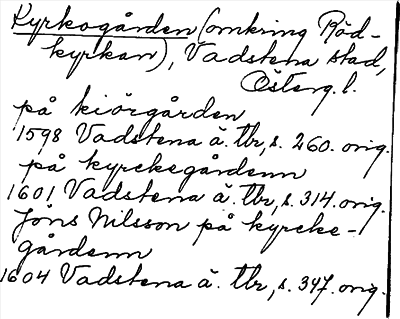 Kyrkogården (omkring Röd-
kyrkan), Vadstena stad,
Österg. l.
på kiörgården
1598 Vadstena ä. tbr, s. 260. orig.
på kyrckegårdenn
1601 Vadstena ä. tbr, s. 314. orig.
Jöns Nilsson på kyrcke-
gårdenn
1604 Vadstena ä. tbr, s. 347. orig.